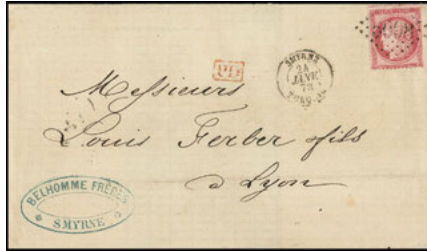 SMYRNE
24
JANV.
73
PD
Messieurs
Louis Ferber fils
à Lyon
BELHOMME FRÈRES
SMYRNE